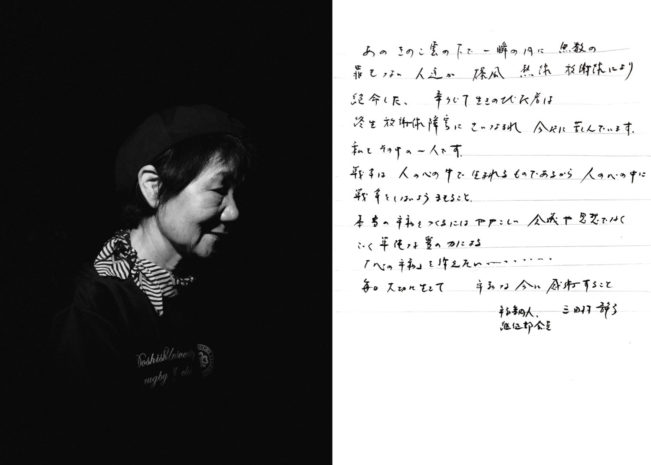 Doshish University
rugby
あのきのこ雲の下で一瞬の内に無数の
罪もない人達が 爆風 熱線 放射線により
絶命した、辛うじて生きのびた者は
終生放射線障害にさいなまれ 今だに苦しんでいます。
私もその中の一人です。
戦争は人の心の中で生まれるものであるから 人の心の中に
戦争をしないよう
本当の平和をつくるにはややこしい や思想ではなく
ごく単純な愛の力による
「心の平和」を訴えたい‥‥‥
毎日大切に生きて 平和な今に感謝すること
人、三田村静子